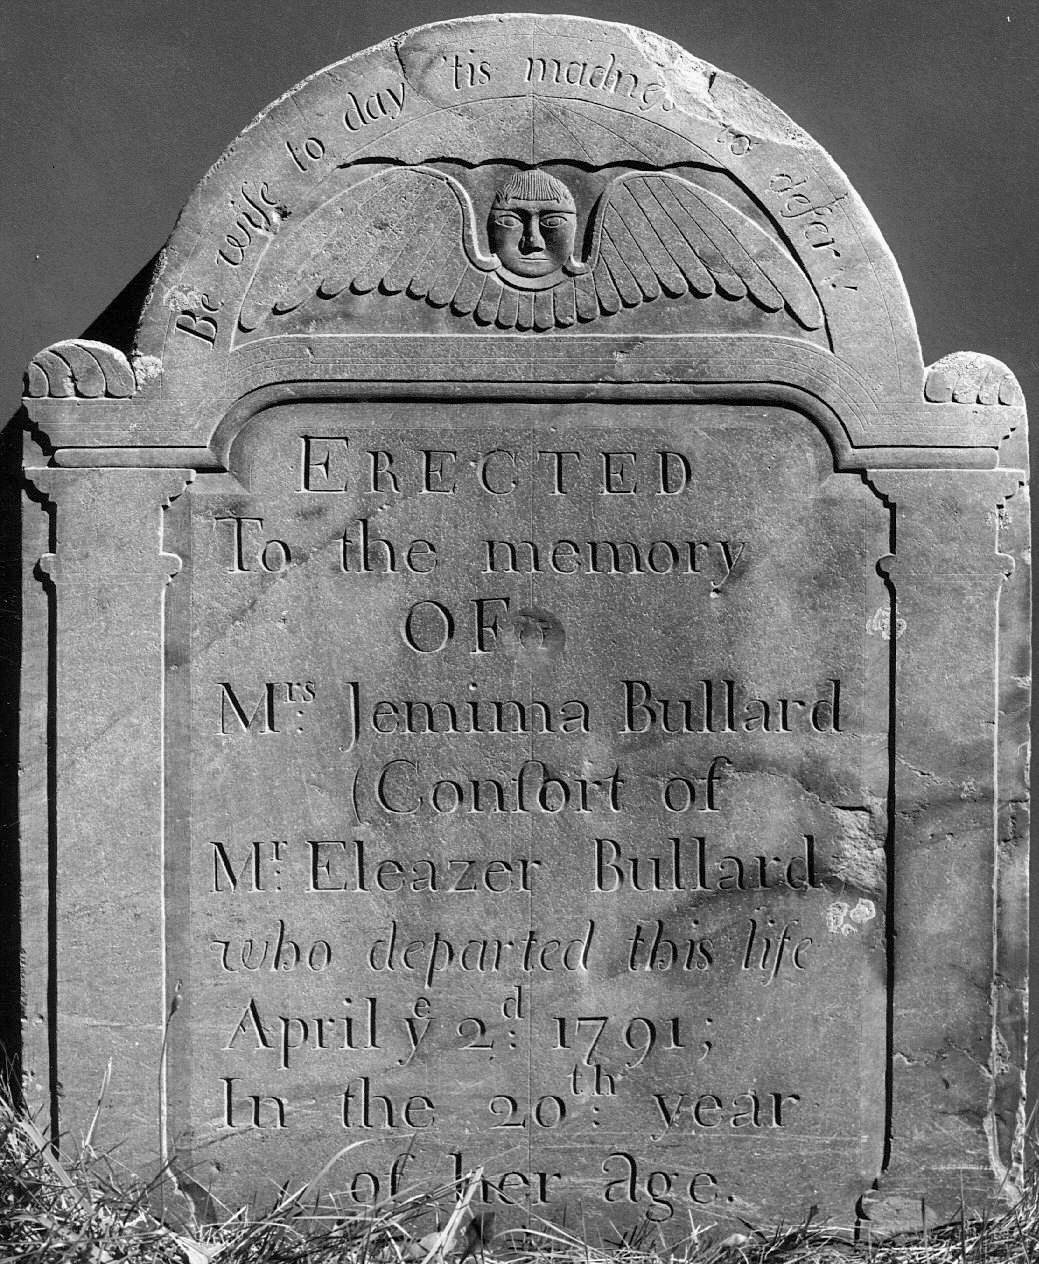 Be wise to day 'tis madness to defer.
ERECTED
To the memory
OF
Mrs: Jemima Bullard
(Conſort of
Mr: Eleazer Bullard
who departed this life
April ye 2d: 1791;
In the 20th: year
of her age.